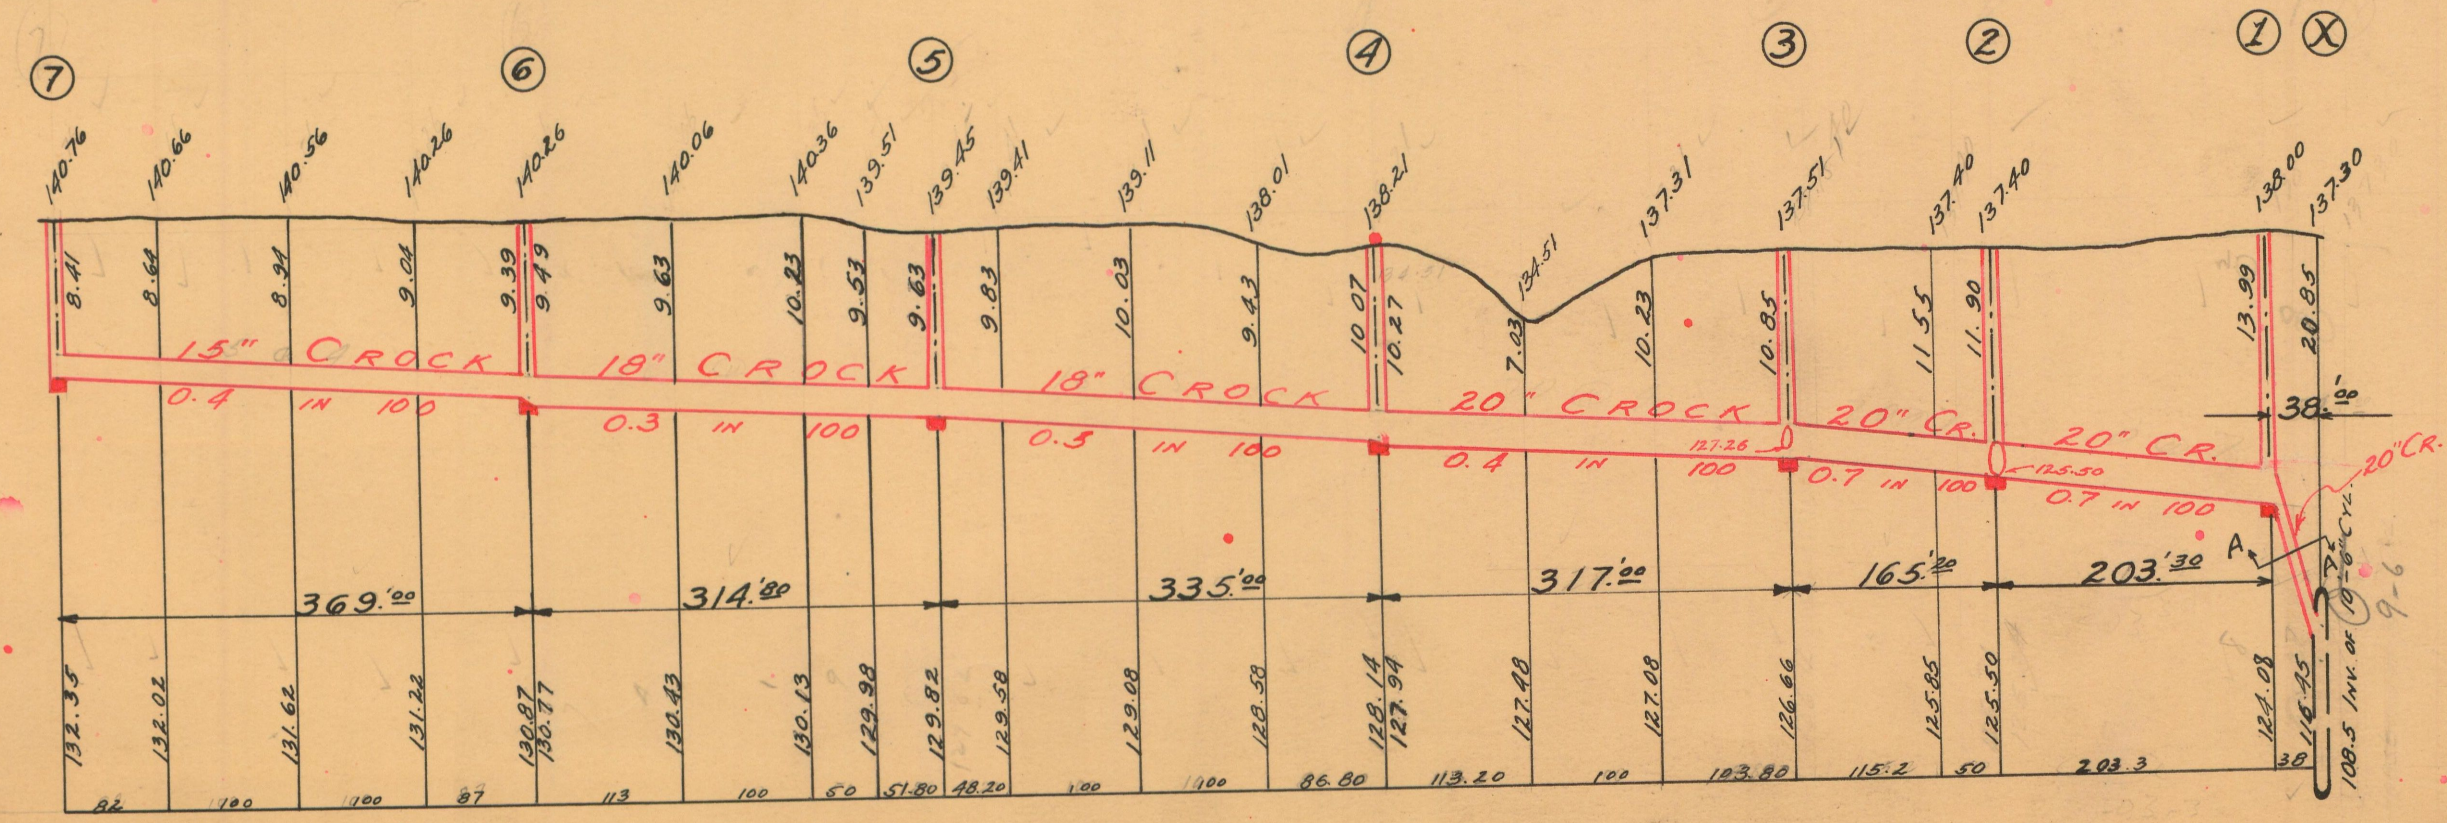 7 6 5 4 3 2 1 X
140.76 140.66 140.56 140.26 140.26 140.06 140.36 139.51 139.45 139.41 139.11 138.01 138.21 134.51 137.31 137.51 137.40 137.40 138.00 137.30
8.41 8.64 8.94 9.04 9.39 9.49 9.63 10.23 9.53 9.63 9.83 10.03 9.43 10.07 10.27 7.03 10.23 10.85 11.55 11.90 13.99 20.85
15" CROCK 18" CROCK 18" CROCK 20" CROCK 20" CR. 20" CR. 20" CR.
0.4 IN 100 0.3 IN 100 0.5 IN 100 0.4 IN 100 0.7 IN 100 0.7 IN 100
127.26 125.50
38.'00
A A
369.'00 314.'80 335.'00 317.'00 165.'20 203.'30
132.35 132.02 131.62 131.22 130.87 130.77 130.43 130.13 129.98 129.82 129.58 129.08 128.58 128.14 127.94 127.48 127.08 126.66 125.85 125.50 124.08 116.45
108.5 INV. OF 10'-6" CYL.
9-6
82 100 100 87 113 100 50 51.80 48.20 100 100 86.80 113.20 100 103.80 115.2 50 203.3 38